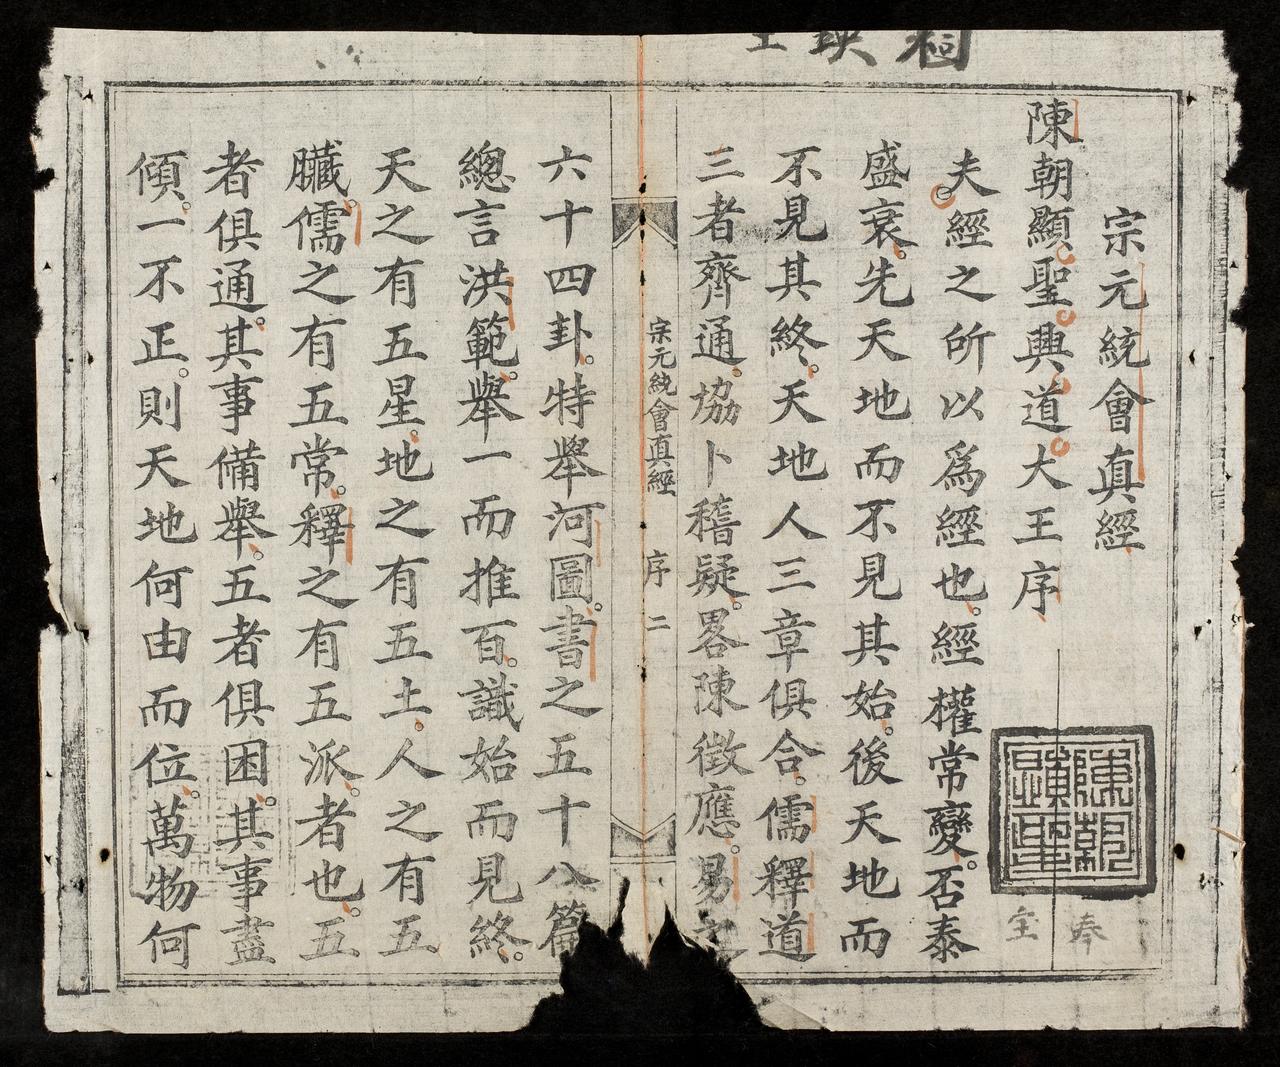 宗元統會真經
陳朝顯聖興道大王序
夫經之所以爲經也。經權常變。否泰
盛衰。先天地而不見其始。後天地而
不見其終。天地人三章俱合。儒釋道
三者齊通。協卜稽疑。畧陳徵應。易之
宗元統會真經 序 二
六十四卦。特舉河圖。書之五十八篇
總言洪範。舉一而推百。識始而見終。
天之有五星。地之有五土。人之有五
臟。儒之有五常。釋之有五派。者也。五
者俱通。其事備舉。五者俱困。其事盡
傾。一不正。則天地何由而位。萬物何
陳朝顯聖
奉